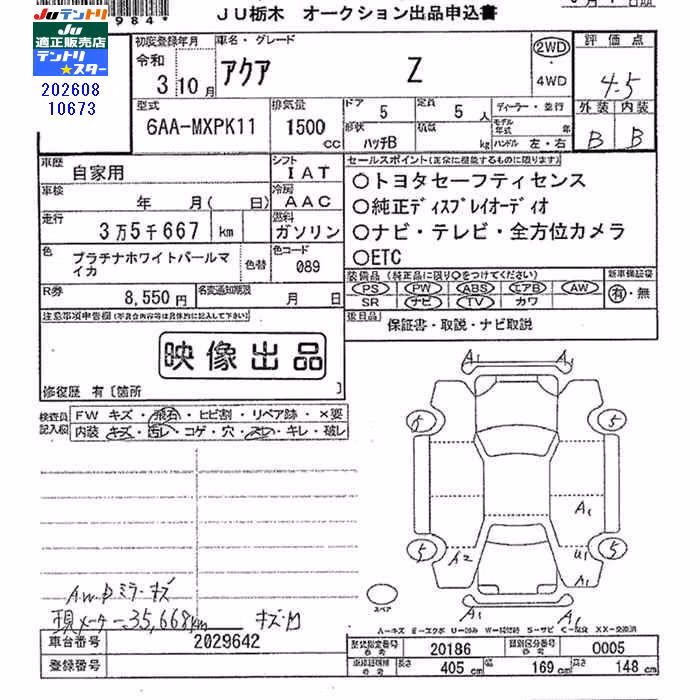 984*
JU栃木 オークション出品申込書
Juテントリ
Ju適正販売店
テントリ★スター
202608
10673
初度登録年月
令和
3 10月
車名・グレード
アクア Z
2WD
・
4WD
評価点
4.5
外装 内装
B B
型式
6AA-MXPK11
排気量
1500 cc
ドア 5
定員 5 人
形状 ハッチB
積載 kg
ディーラー・並行
モデル年式 年
ハンドル 左・右
車歴 自家用
シフト IAT
車検 年 月( 日)
冷房 AAC
走行 3万5千667 km
燃料 ガソリン
色 プラチナホワイトパールマイカ
色替
色コード 089
R券 8,550円
名変通知期限 月 日
セールスポイント(正常に機能するものに限ります)
○トヨタセーフティセンス
○純正ディスプレイオーディオ
○ナビ・テレビ・全方位カメラ
○ETC
装備品(純正品に限り○をつけてください)
PS PW ABS エアB AW
SR ナビ TV カワ
新車保証書
有・無
後日品 保証書・取説・ナビ取説
注意事項申告欄(不具合内容等は具体的に記入して下さい)
映像出品
修復歴 有〔箇所 〕
検査員記入欄
FW キズ・飛石・ヒビ割・リペア跡・×要
内装 キズ・汚レ・コゲ・穴・スレ・キレ・破レ
A1 A1
5 5
A1
5 A2 U1 5
A1
A1 A1
スペア
A.W ドミラーキズ
現メーター35,668km キズ・凹
A-キズ E-エクボ U-凹み W-補修跡 S-サビ C-腐食 XX-交換済
車台番号 2029642
登録番号
型式指定番号 参考 20186
類別区分番号 参考 0005
車検証積載 参考 長さ 405 cm 幅 169 cm 高さ 148 cm